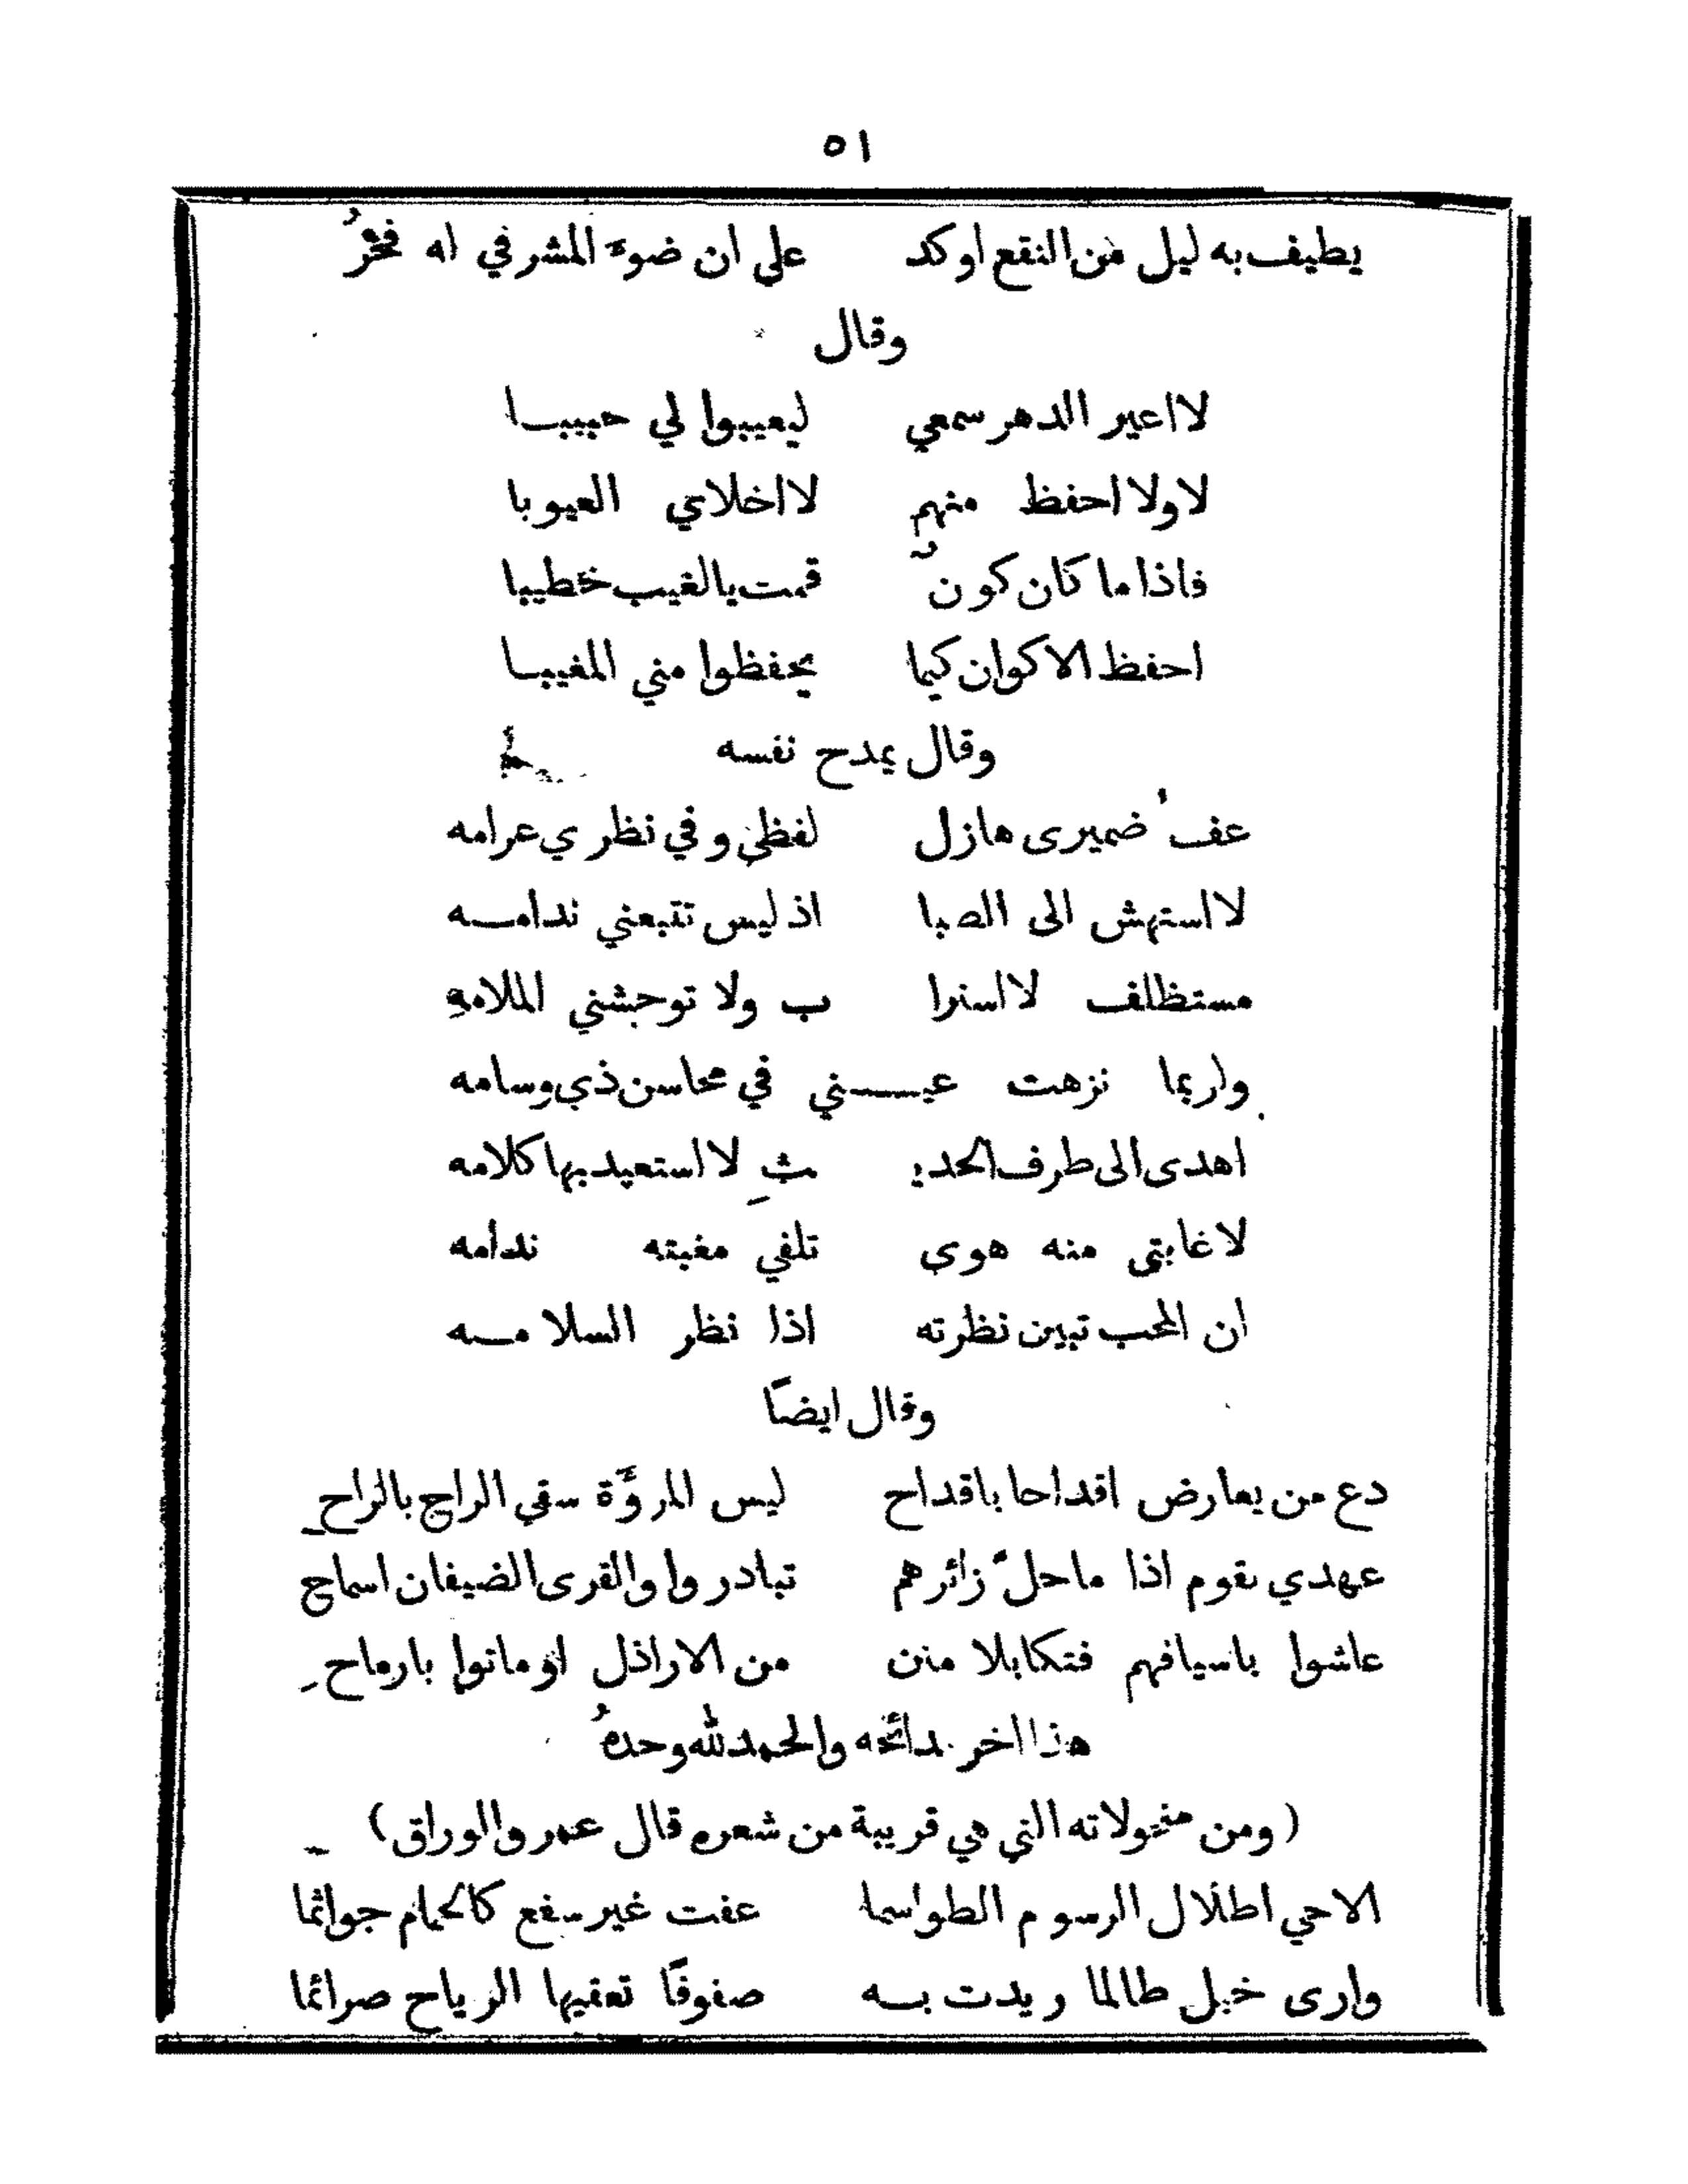 ٥١
يطيف به ليل من النقع اوكد علي ان ضوء المشرفي له فخرُ
وقال
لا اعير الدهر سمعي ليعيبوا لي حبيبا
لا ولا احفظ منهم لا اخلاي العيوبا
فاذا ما كان كونٌ قمت بالغيب خطيبا
احفظ الاكوان كيما يحفظوا مني المغيبا
وقال يمدح نفسه
عف ضميرى هازل لفظي وفي نظري عرامه
لا استهش الى الصبا اذ ليس تتبعني ندامه
مستظلف لا استرا ب ولا توحشني الملامه
ولربما نزهت عيني في محاسن ذي وسامه
اهدى الى طرف الحديـ ـثِ لا استعيد بها كلامه
لا غايتى منه هوى تلفي مغبته ندامه
ان المحب تبين نظرته اذا نظر السلامه
وقال ايضاً
دع من يعارض اقداحا باقداح ليس المروَّة سقي الراح بالراحِ
عهدي بقوم اذا ما حلَّ زائرهم تبادروا والقرى الضيفان اسماح
عاشوا باسيافهم فتكا بلا منن من الاراذل او ماتوا بارماحِ
هذا اخر مدائحه والحمد لله وحدهُ
(ومن منحولاته التي هي قريبة من شعره قال عمرو الوراق)
الا حي اطلال الرسوم الطواسما عفت غير سفع كالحمام جواثما
وارى خيل طالما ريدت به صفوفًا تعفيها الرياح صرائما